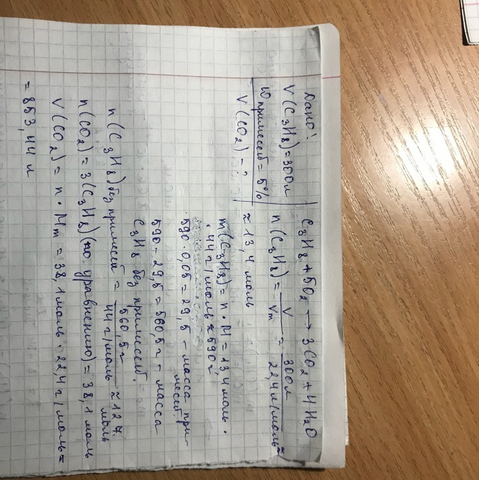 Дано:
V(C₃H₈)=300л
ω примесей = 5%
V(CO₂) - ?
C₃H₈ + 5O₂ → 3CO₂ + 4H₂O
n(C₃H₈) = V/Vm = 300л/22,4 л/моль ≈
≈ 13,4 моль
m(C₃H₈) = n · M = 13,4 моль ·
· 44 г/моль ≈ 590 г
590 · 0,05 = 29,5 - масса при-
месей
590 - 29,5 = 560,5 г - масса
C₃H₈ без примесей.
n(C₃H₈) без примесей = 560,5 г/44 г/моль ≈ 12,7
моль
n(CO₂) = 3(C₃H₈) (по уравнению) = 38,1 моль
V(CO₂) = n · Mm = 38,1 моль · 22,4 г/моль =
= 853,44 л